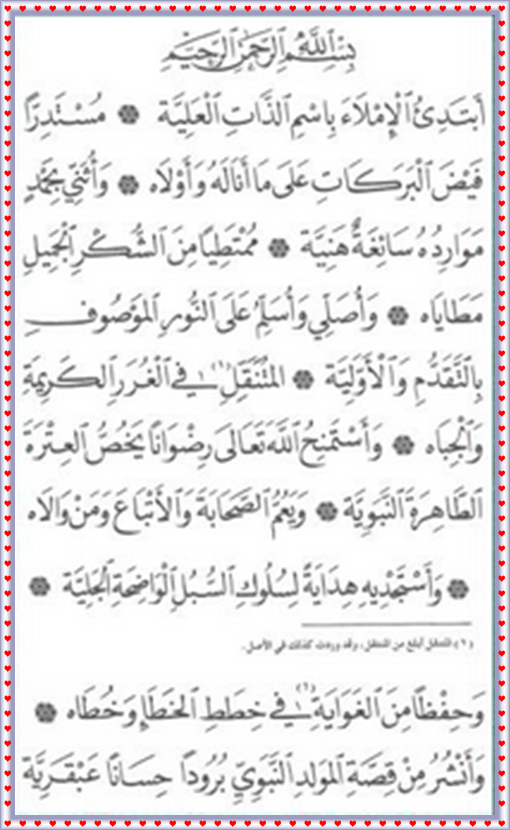 بِسْمِ اللَّهِ الرَّحْمَنِ الرَّحِيْمِ
أَبْتَدِئُ الْإِمْلَاءَ بِاسْمِ الذَّاتِ الْعَلِيَّة ۞ مُسْتَدِرًّا
فَيْضَ الْبَرَكَاتِ عَلَى مَا أَنَالَهُ وَأَوْلَاه ۞ وَأُثَنِّي بِحَمْدٍ
مَوَارِدُهُ سَائِغَةٌ هَنِيَّة ۞ مُمْتَطِيًا مِنَ الشُّكْرِ الْجَمِيلِ
مَطَايَاه ۞ وَأُصَلِّي وَأُسَلِّمُ عَلَى النُّورِ الْمَوْصُوفِ
بِالتَّقَدُّمِ وَالْأَوَّلِيَّة ۞ الْمُتَنَقِّلِ (١) فِي الْغُرَرِ الْكَرِيمَةِ
وَالْجِبَاه ۞ وَأَسْتَمْنِحُ اللَّهَ تَعَالَى رِضْوَانًا يَخُصُّ الْعِتْرَةَ
الطَّاهِرَةَ النَّبَوِيَّة ۞ وَيَعُمُّ الصَّحَابَةَ وَالْأَتْبَاعَ وَمَنْ وَالَاه
۞ وَأَسْتَجْدِيهِ هِدَايَةً لِسُلُوكِ السُّبُلِ الْوَاضِحَةِ الْجَلِيَّة ۞
(١) المتنقل أبلغ من المنتقل، وقد وردت كذلك في الأصل.
وَحِفْظًا مِنَ الْغَوَايَةِ (١) فِي خِطَطِ الْخَطَإِ وَخُطَاه ۞
وَأَنْشُرُ مِنْ قِصَّةِ الْمَوْلِدِ النَّبَوِيِّ بُرُودًا حِسَانًا عَبْقَرِيَّة